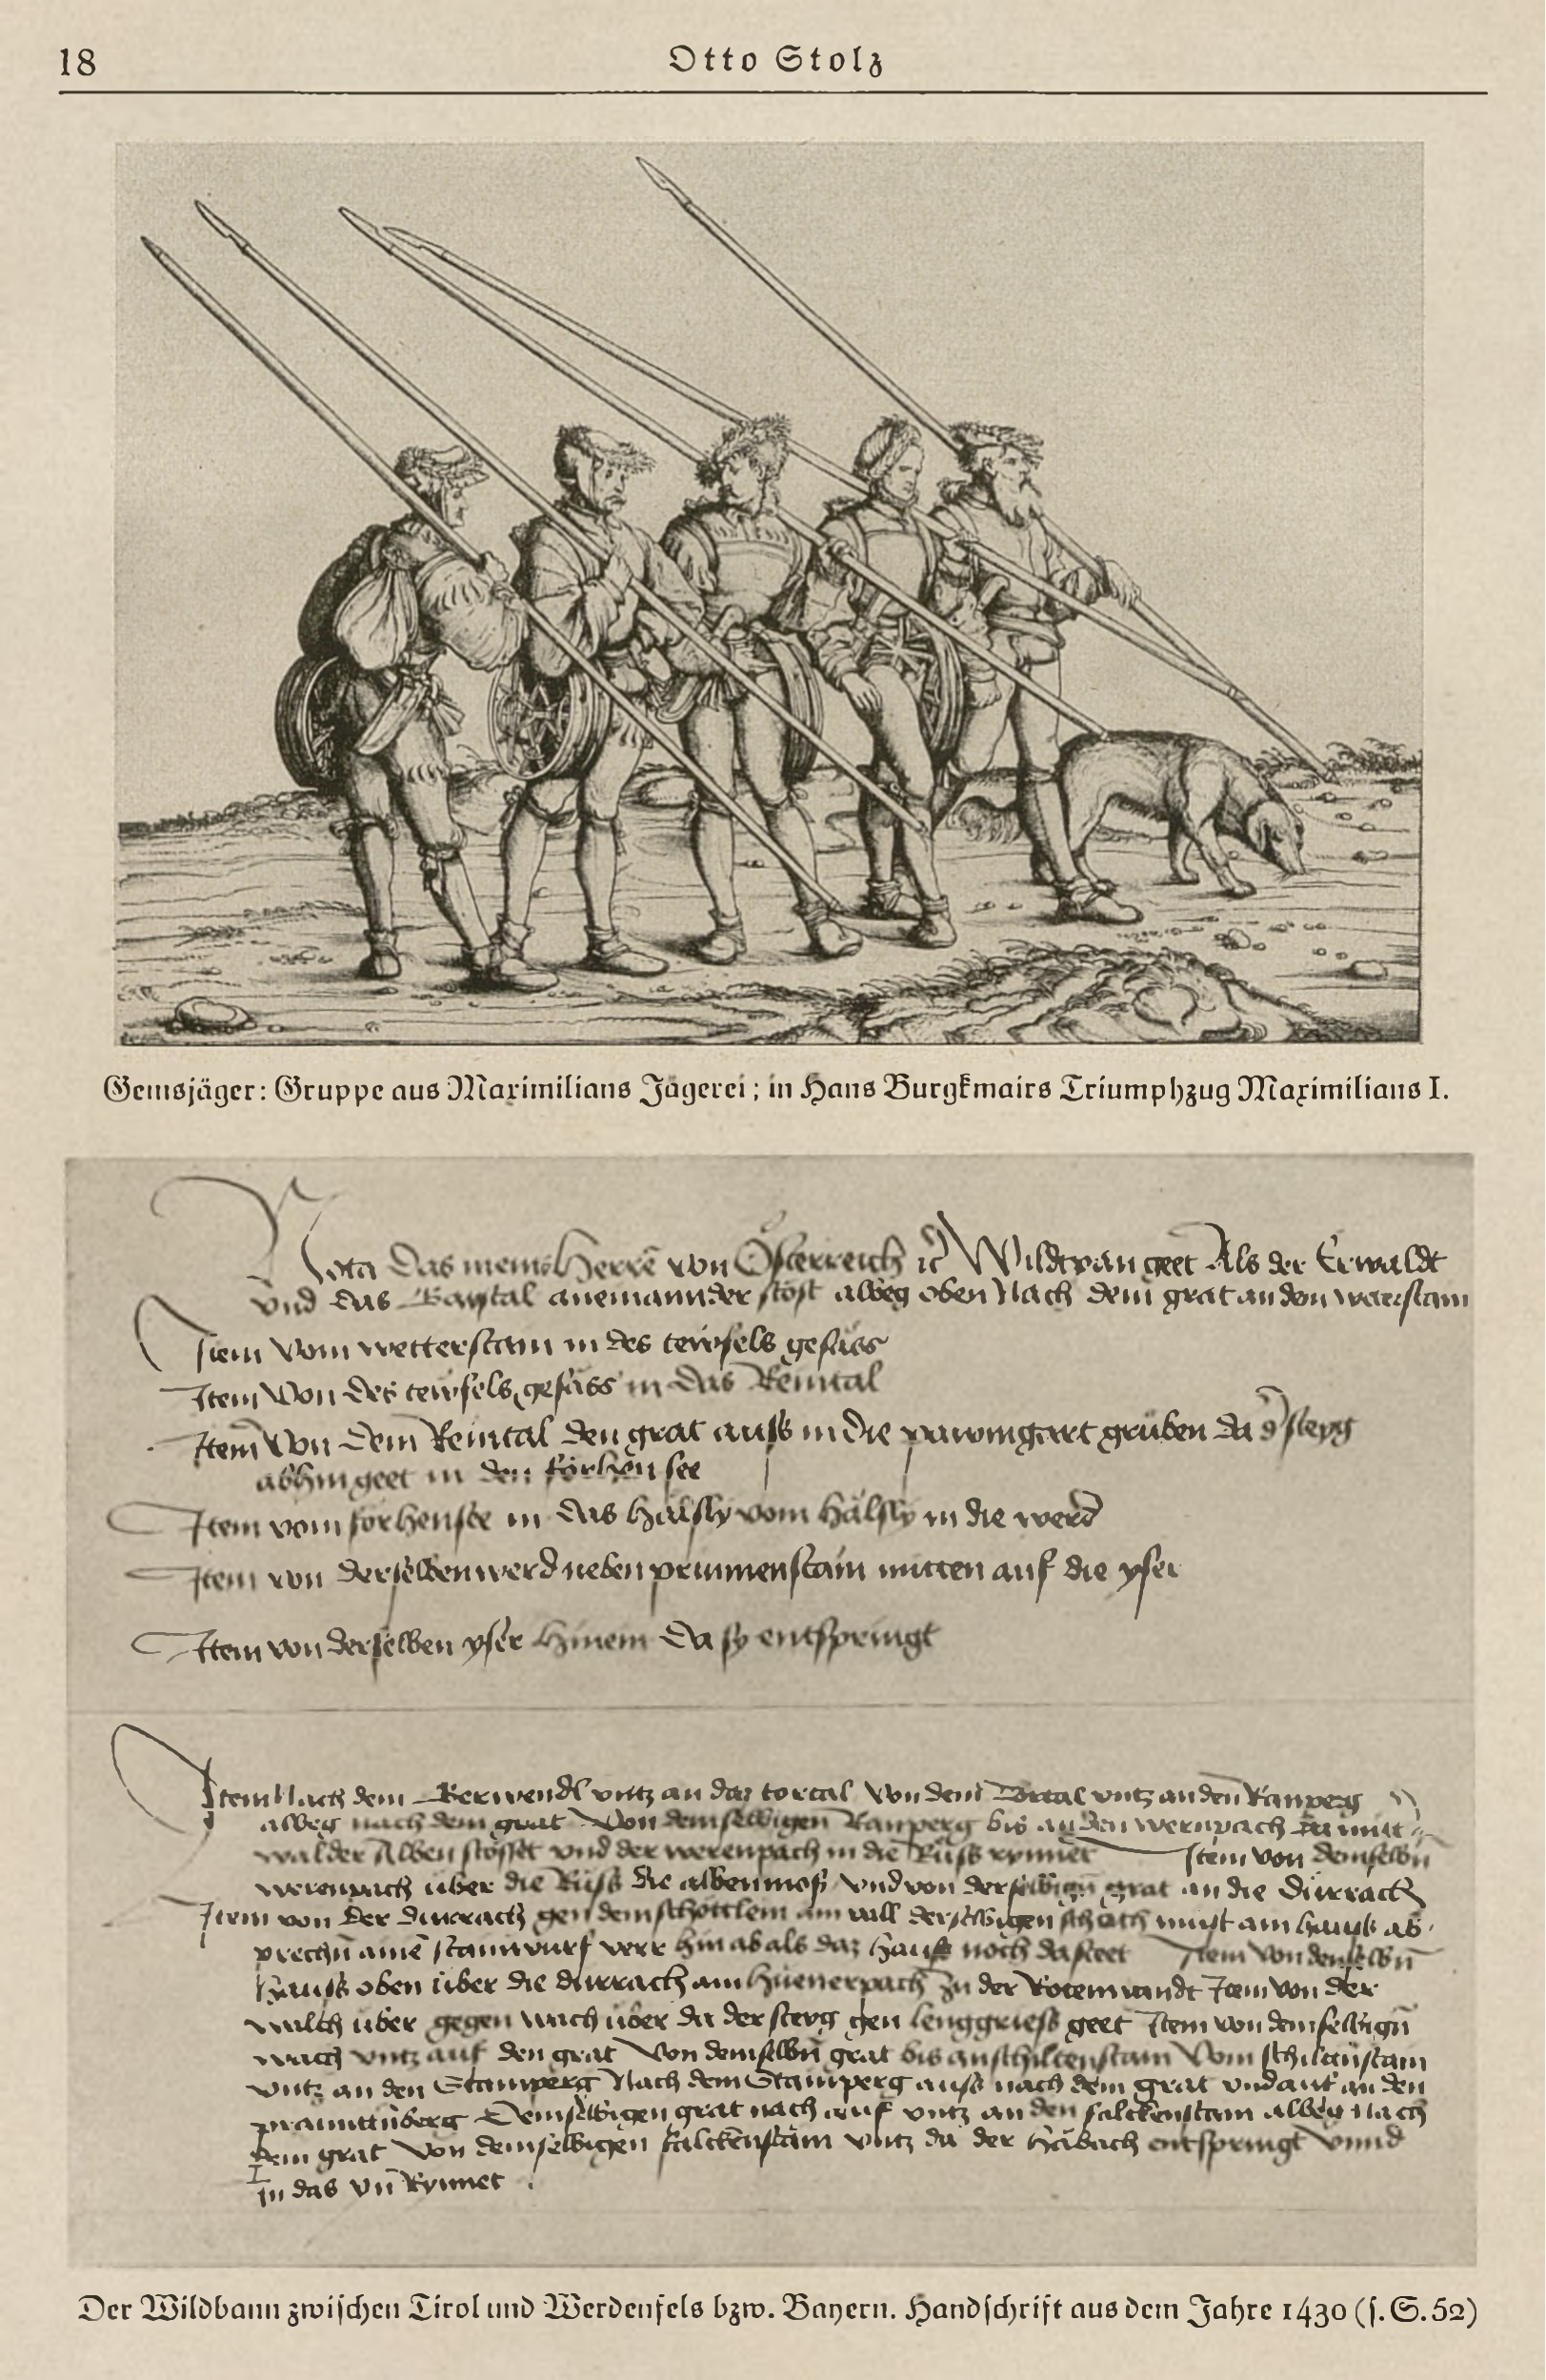 18
Otto Stolz
Gemsjäger: Gruppe aus Maximilians Jägerei; in Hans Burgkmairs Triumphzug Maximilians I.
Nota das meins Herrē von Österreich ꝛc̄ Wildpan geet Als der Erwaldt
vnd das anemannder stost albeg oben Nach dem grat an den
Item Vom wetterstain in des tewfels gesäss
Item Von des tewfels gesäss in das Reintal
Item Von dem Reintal den grat auss in die pawmgart gruben da d͛ steyg
abhin geet in den forhen see
Item vom forhensee in das hälsly vom hälsly in die werd
Item von derselben werd neben prunnenstain mitten auf die yser
Item von derselben yser hinein da sy entspringt
Item Nach dem Kerwendl vntz an daz tortal Von dem vntz an den Ranperg
albeg nach dem grat Von demselbigen Ranperg bis an den wernpach da mitt
walder Alben stosset vnd der werenpach in die Riss rynnet Item von demselbn̄
werenpach über die Riss die vnd von grat an die Dürrach
Item von der Durrach gen dem am wall
prechn̄ ainē stainwurf verr hin ab als daz hauss noch da steet Item Von demselbn̄
hauss oben über die durrach am hüenerpach zu der Rotemwandt Item von der
walch über gegen wach über da der steyg gen lenggriess geet Item von demselbign̄
wach vntz auf den grat Von demselbn̄ grat bis an schiltenstain Vom
vntz an den Stainperg Nach dem Stainperg auss nach dem grat vnd an den
Demselbigen grat nach auf vntz an den falckenstain albeg nach
dem grat Von demselbigen falckenstain vntz da der entspringt vnnd
In das Rynnet .
Der Wildbann zwischen Tirol und Werdenfels bzw. Bayern. Handschrift aus dem Jahre 1430 (s. S. 52)